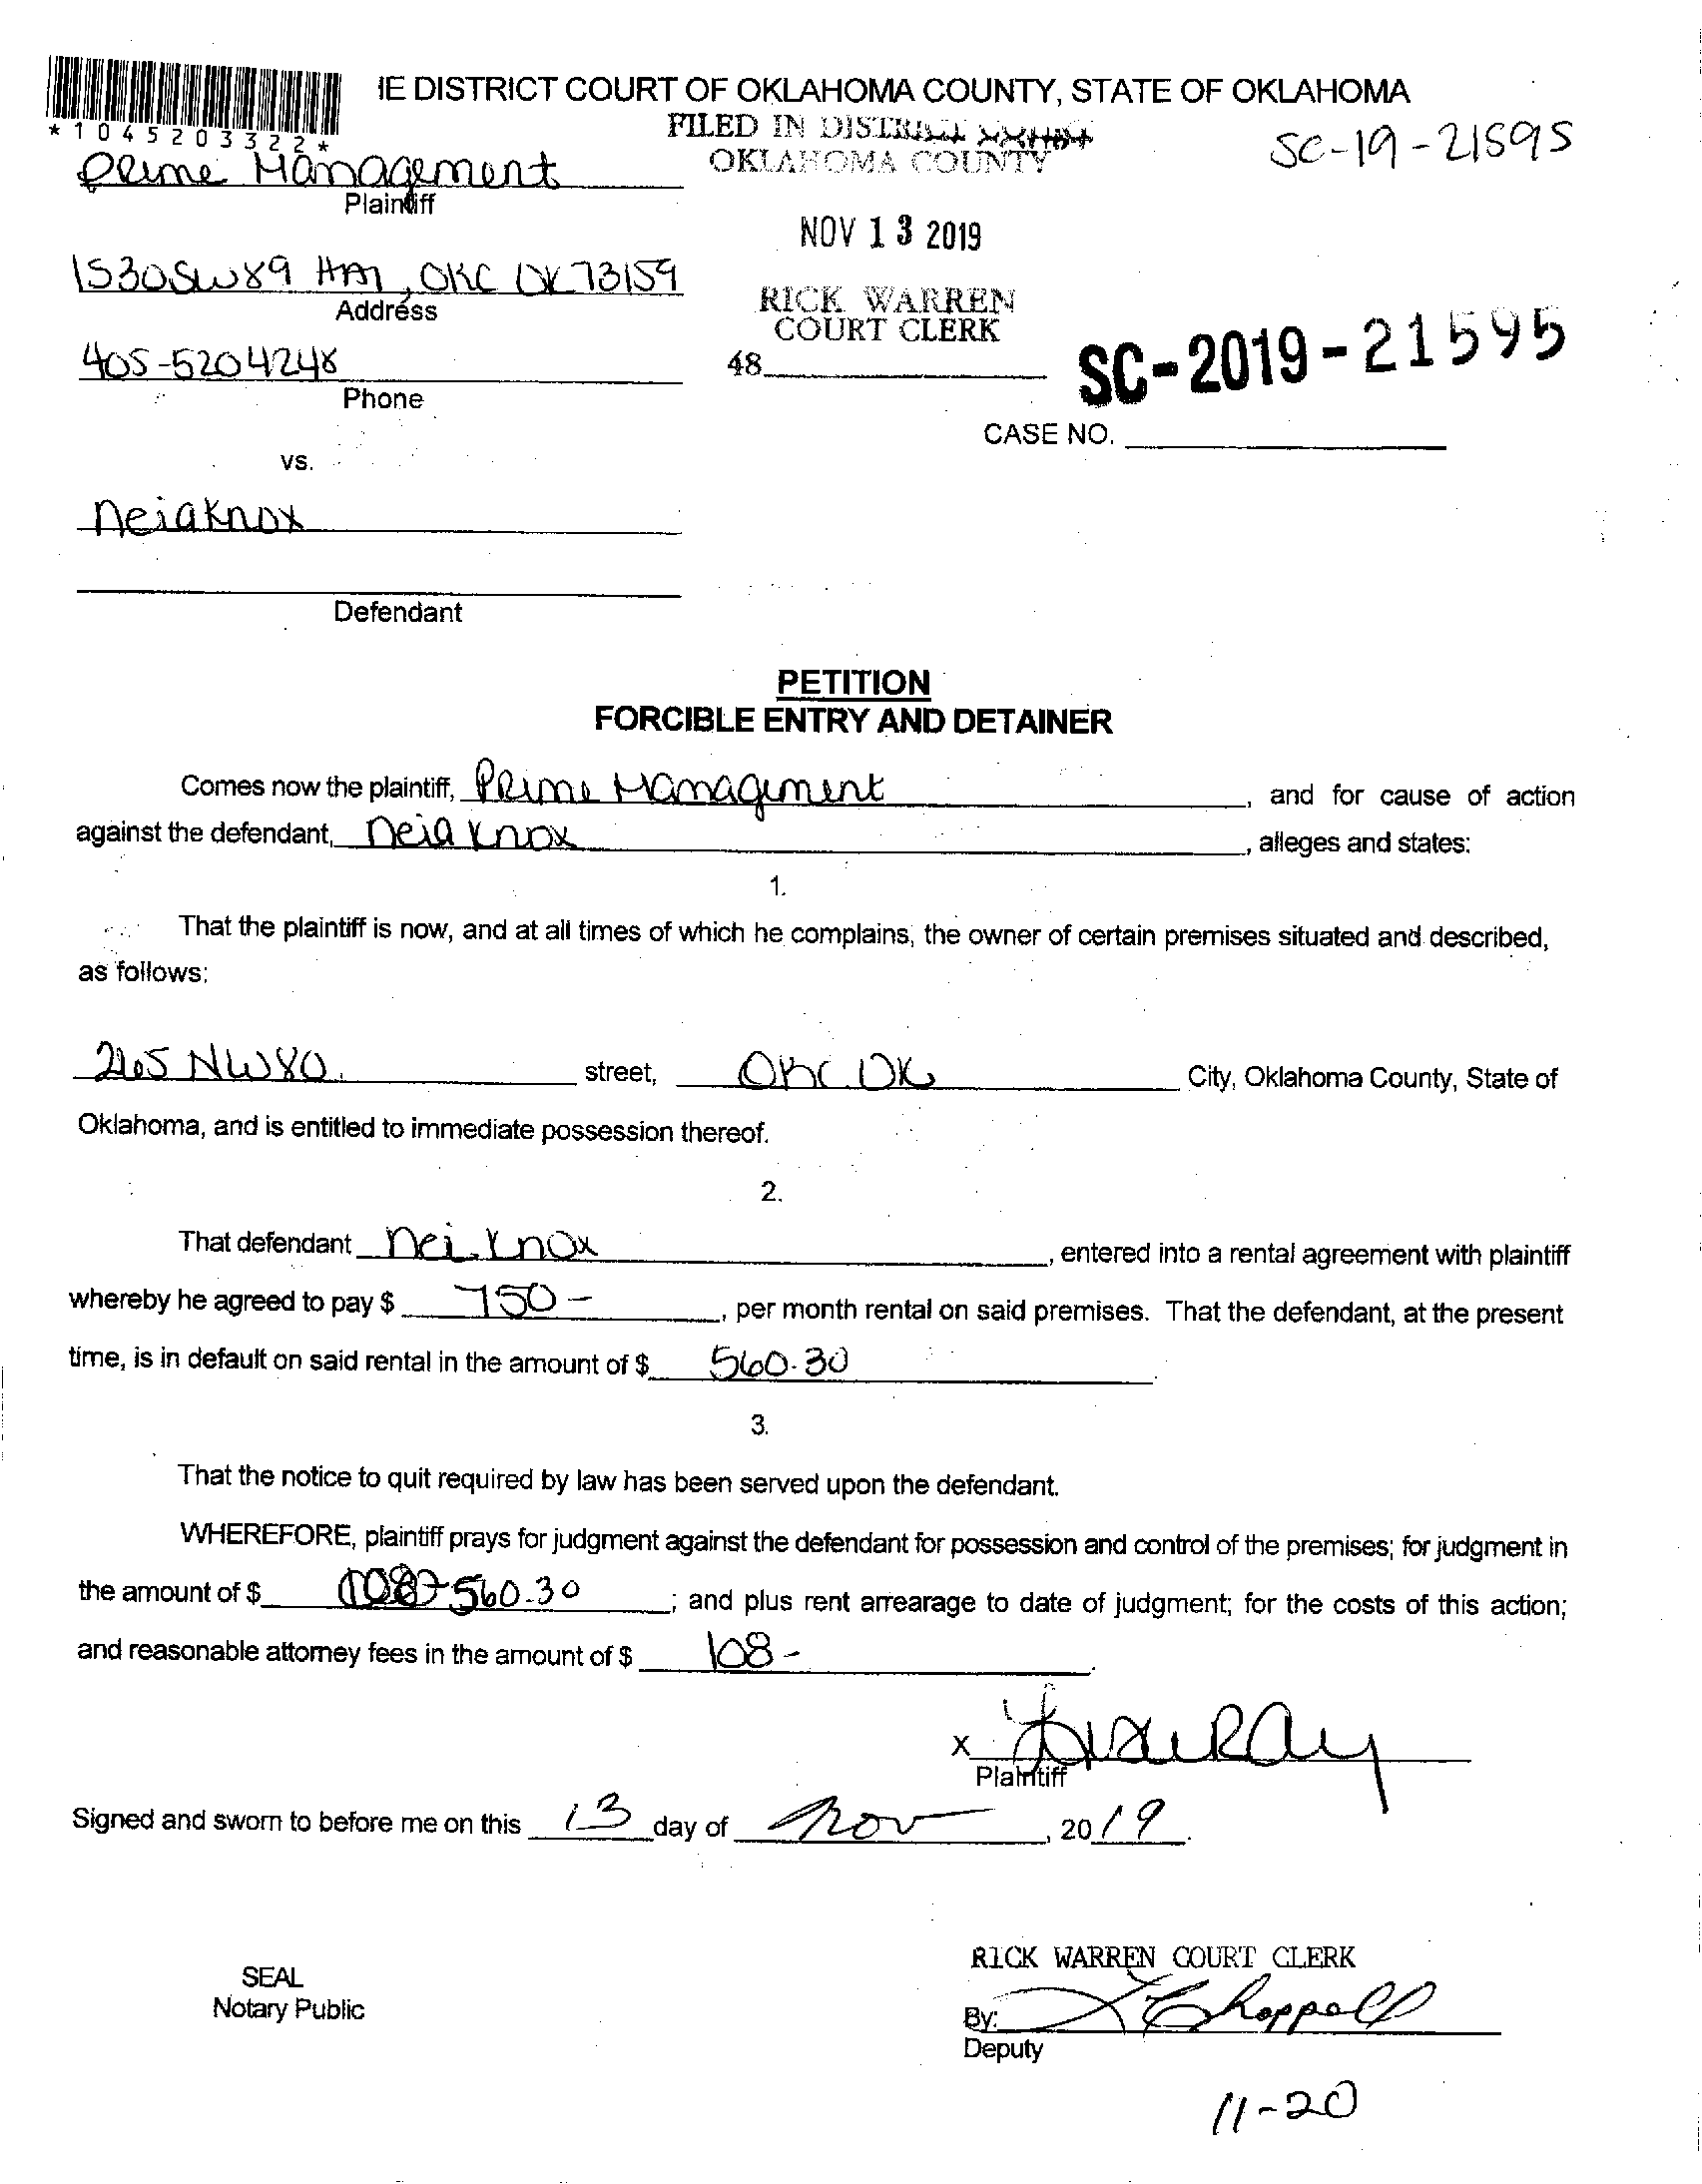 IE DISTRICT COURT OF OKLAHOMA COUNTY, STATE OF OKLAHOMA
*1045203322*
FILED IN DISTRICT
OKLAHOMA COUNTY
SC-19-21595
Prime Management
Plaintiff
NOV 13 2019
1530 SW 89 , OKC OK 73159
Address
RICK WARREN
COURT CLERK
405-5204248
Phone
48
SC-2019-21595
CASE NO.
vs.
Neia Knox
Defendant
PETITION
FORCIBLE ENTRY AND DETAINER
Comes now the plaintiff, Prime Management, and for cause of action
against the defendant, Neia Knox, alleges and states:
1.
That the plaintiff is now, and at all times of which he complains, the owner of certain premises situated and described,
as follows:
265 NW 80 street, OKC OK City, Oklahoma County, State of
Oklahoma, and is entitled to immediate possession thereof.
2.
That defendant Nei Knox, entered into a rental agreement with plaintiff
whereby he agreed to pay $ 750-, per month rental on said premises. That the defendant, at the present
time, is in default on said rental in the amount of $ 560.30.
3.
That the notice to quit required by law has been served upon the defendant.
WHEREFORE, plaintiff prays for judgment against the defendant for possession and control of the premises; for judgment in
the amount of $ 560.30; and plus rent arrearage to date of judgment; for the costs of this action;
and reasonable attorney fees in the amount of $ 108-.
x
Plaintiff
Signed and sworn to before me on this 13 day of Nov, 2019.
SEAL
Notary Public
RICK WARREN COURT CLERK
By: Chappell
Deputy
11-20